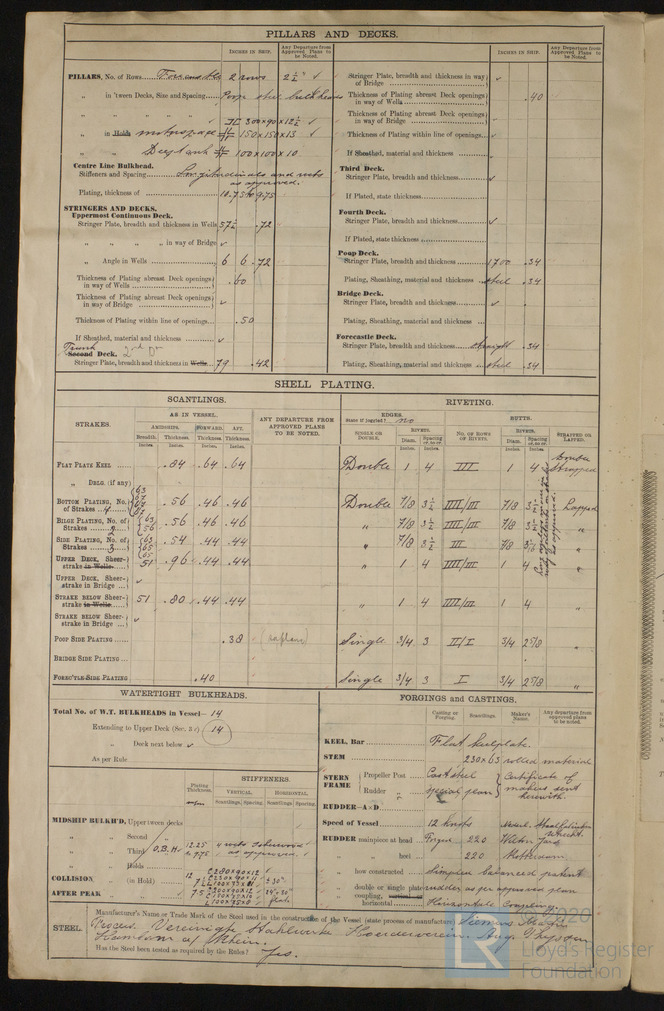 PILLARS AND DECKS.
INCHES IN SHIP.
Any Departure from Approved Plans to be Noted.
INCHES IN SHIP.
Any Departure from Approved Plans to be Noted.
PILLARS, No. of Rows 2 rows 2½"
„ in 'tween Decks, Size and Spacing Poop steel bulkheads
300×90×12½
„ in Holds 150×150×13
Deeptank 100×100×10
Centre Line Bulkhead.
Stiffeners and Spacing Longitudinals and webs as approved.
Plating, thickness of 10.75 to 9.75
STRINGERS AND DECKS.
Uppermost Continuous Deck.
Stringer Plate, breadth and thickness in Wells 57½ .72
„ „ „ „ in way of Bridge
„ Angle in Wells 6 6 .72
Thickness of Plating abreast Deck openings in way of Wells .60
Thickness of Plating abreast Deck openings in way of Bridge
Thickness of Plating within line of openings .50
If Sheathed, material and thickness
Trunk
Second Deck.
Stringer Plate, breadth and thickness in Wells 79 .42
Stringer Plate, breadth and thickness in way of Bridge
Thickness of Plating abreast Deck openings in way of Wells .40
Thickness of Plating abreast Deck openings in way of Bridge
Thickness of Plating within line of openings
If Sheathed, material and thickness
Third Deck.
Stringer Plate, breadth and thickness
If Plated, state thickness
Fourth Deck.
Stringer Plate, breadth and thickness
If Plated, state thickness
Poop Deck.
Stringer Plate, breadth and thickness 1700 .34
Plating, Sheathing, material and thickness steel .34
Bridge Deck.
Stringer Plate, breadth and thickness
Plating, Sheathing, material and thickness
Forecastle Deck.
Stringer Plate, breadth and thickness straight .34
Plating, Sheathing, material and thickness steel .34
SHELL PLATING.
SCANTLINGS.
RIVETING.
STRAKES.
AS IN VESSEL.
AMIDSHIPS. FORWARD. AFT.
Breadth. Thickness. Thickness. Thickness.
Inches. Inches. Inches. Inches.
ANY DEPARTURE FROM APPROVED PLANS TO BE NOTED.
EDGES.
State if joggled? no
BUTTS.
SINGLE OR DOUBLE.
RIVETS.
Diam. Spacing
NO. OF ROWS OF RIVETS.
RIVETS.
Diam. Spacing
STRAPPED OR LAPPED.
FLAT PLATE KEEL .84 .64 .64 Double 1 4 III 1 4 Double Strapped
„ DBLG. (if any)
BOTTOM PLATING, No. of Strakes 4 63 67 67 67 .56 .46 .46 Double 7/8 3½ IIII/III 7/8 3½ Lapped
BILGE PLATING, No. of Strakes 2 63 56 .56 .46 .46 „ 7/8 3½ IIII/III 7/8 3½ „
SIDE PLATING, No. of Strakes 3 63 65 65 .54 .44 .44 „ 7/8 3½ III 7/8 3½ „
UPPER DECK, Sheerstrake in Wells 51 .96 .44 .44 „ 1 4 IIII/III 1 4 „
UPPER DECK, Sheerstrake in Bridge
STRAKE BELOW Sheerstrake in Wells 51 .80 .44 .44 „ 1 4 IIII/III 1 4 „
STRAKE BELOW Sheerstrake in Bridge
POOP SIDE PLATING .38 Single 3/4 3 II/I 3/4 25/8 „
BRIDGE SIDE PLATING
FORECTLE SIDE PLATING .40 Single 3/4 3 I 3/4 25/8 „
WATERTIGHT BULKHEADS.
Total No. of W.T. BULKHEADS in Vessel— 14
Extending to Upper Deck (Sec. 3) 14
„ Deck next below
As per Rule
Plating Thickness.
STIFFENERS.
VERTICAL. HORIZONTAL.
Scantlings. Spacing. Scantlings. Spacing.
MIDSHIP BULKH'D, Upper tween decks
„ „ Second „
„ „ Third O.B.H. 12.25 to 9.75 as approved.
„ „ Holds
COLLISION „ (in Hold)
AFTER PEAK „
FORGINGS and CASTINGS.
Casting or Forging. Scantlings. Maker's Name. Any departure from approved plans to be noted.
KEEL, Bar Flat keelplate.
STEM 230×63 rolled material
STERN FRAME
Propeller Post Cast steel
Rudder „ special plan
Certificate of makers send herewith.
RUDDER—A×D
Speed of Vessel 12 knots
RUDDER mainpiece at head Forged 220 Wilton Yard
„ „ heel 220 Rotterdam.
„ how constructed Simplex balanced patent
„ double or single plate rudder as per approved plan
„ coupling, horizontal Horizontal Coupling.
STEEL.
Manufacturer's Name or Trade Mark of the Steel used in the construction of the Vessel (state process of manufacture) Siemens Martin
Process. Vereinigte Stahlwerke Hoerderverein. Aug. Thyssen
Hamborn a/ Rhein.
Has the Steel been tested as required by the Rules? Yes.
© 2020
LR
Lloyd's Register
Foundation